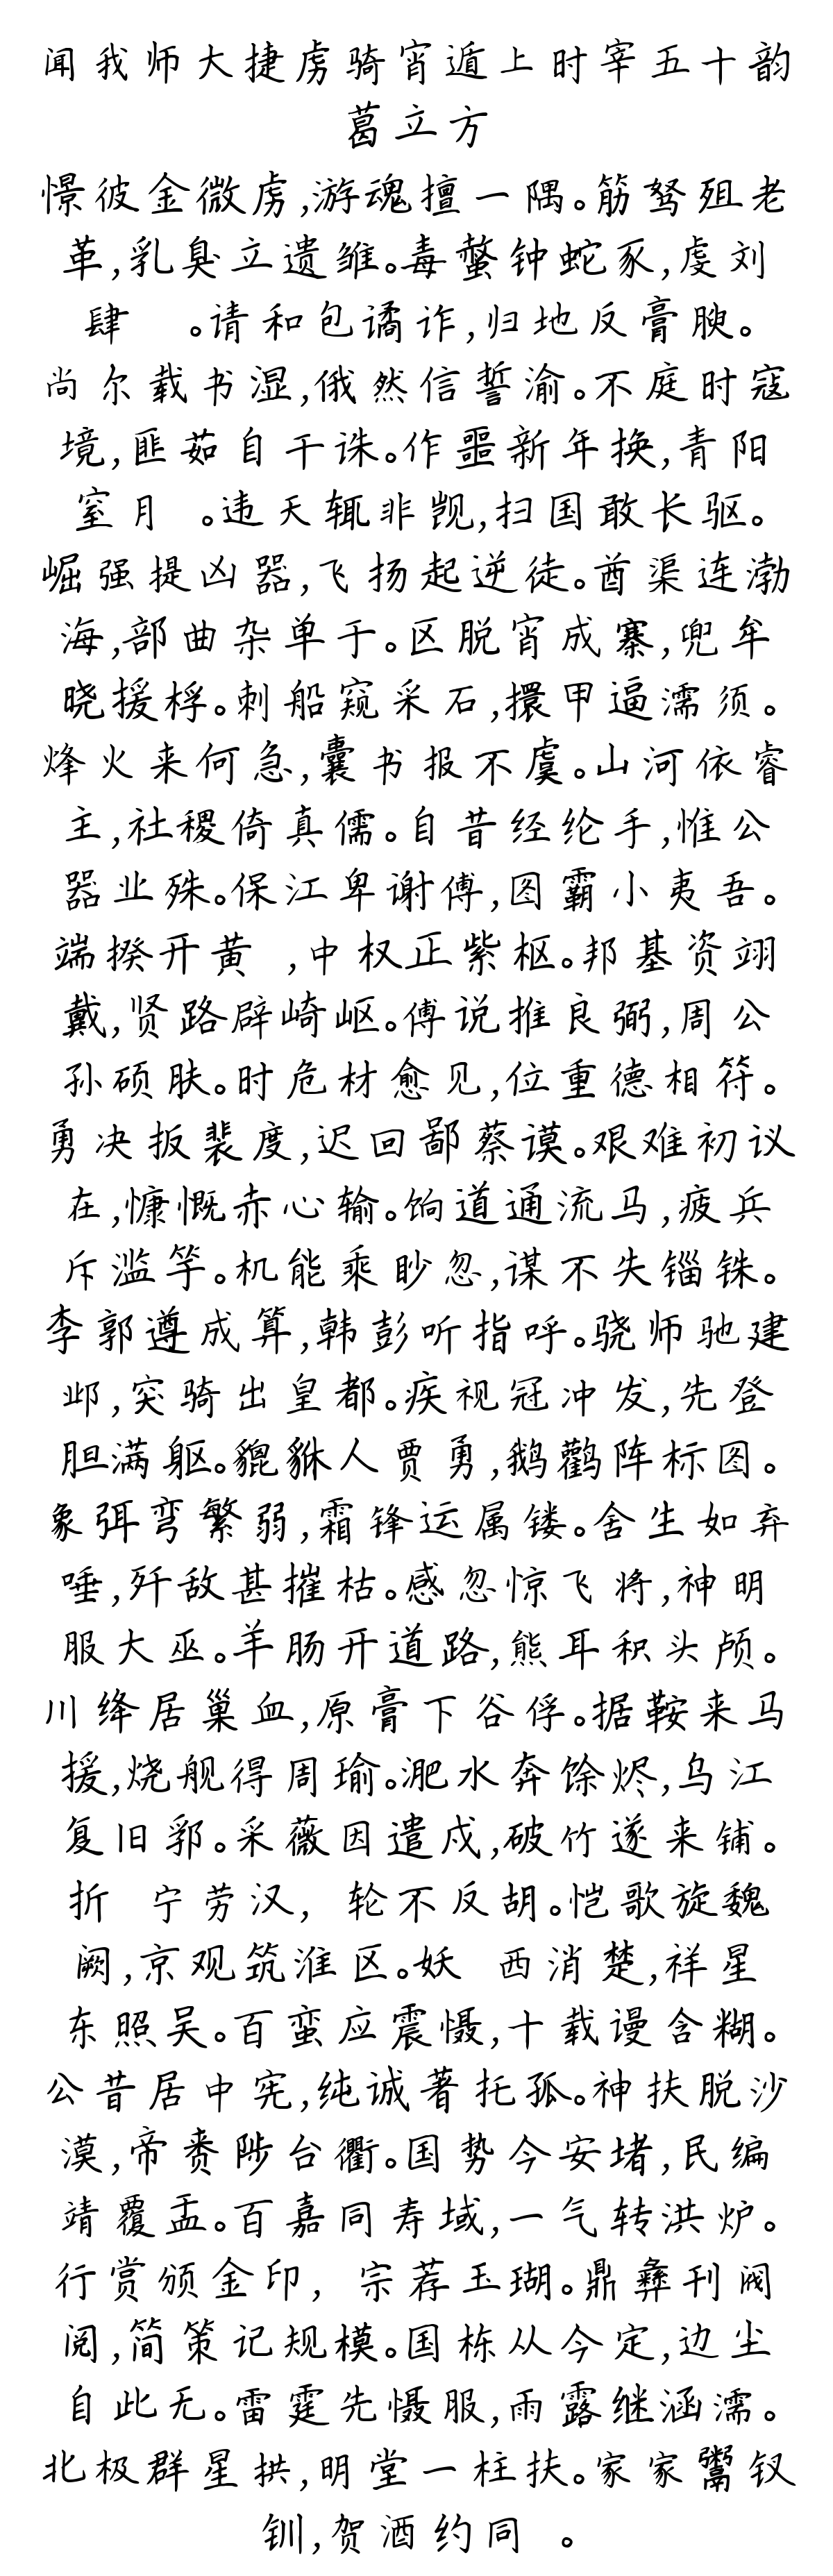 闻我师大捷虏骑宵遁上时宰五十韵
葛立方
憬彼金微虏,游魂擅一隅。筋驽殂老
革,乳臭立遗雏。毒螫钟蛇豕,虔刘
肆 。请和包谲诈,归地反膏腴。
尚尔载书湿,俄然信誓渝。不庭时寇
境,匪茹自干诛。作噩新年换,青阳
窒月 。违天辄非觊,扫国敢长驱。
崛强提凶器,飞扬起逆徒。酋渠连渤
海,部曲杂单于。区脱宵成寨,兜牟
晓援桴。刺船窥采石,擐甲逼濡须。
烽火来何急,囊书报不虞。山河依睿
主,社稷倚真儒。自昔经纶手,惟公
器业殊。保江卑谢傅,图霸小夷吾。
端揆开黄 ,中权正紫枢。邦基资翊
戴,贤路辟崎岖。傅说推良弼,周公
孙硕肤。时危材愈见,位重德相符。
勇决扳裴度,迟回鄙蔡谟。艰难初议
在,慷慨赤心输。饷道通流马,疲兵
斥滥竽。机能乘眇忽,谋不失锱铢。
李郭遵成算,韩彭听指呼。骁师驰建
邺,突骑出皇都。疾视冠冲发,先登
胆满躯。貔貅人贾勇,鹅鹳阵标图。
象弭弯繁弱,霜锋运属镂。舍生如弃
唾,歼敌甚摧枯。感忽惊飞将,神明
服大巫。羊肠开道路,熊耳积头颅。
川绛居巢血,原膏下谷俘。据鞍来马
援,烧舰得周瑜。淝水奔馀烬,乌江
复旧郛。采薇因遣戍,破竹遂来铺。
折 宁劳汉, 轮不反胡。恺歌旋魏
阙,京观筑淮区。妖 西消楚,祥星
东照吴。百蛮应震慑,十载谩含糊。
公昔居中宪,纯诚著托孤。神扶脱沙
漠,帝赉陟台衢。国势今安堵,民编
靖覆盂。百嘉同寿域,一气转洪炉。
行赏颁金印, 宗荐玉瑚。鼎彝刊阀
阅,简策记规模。国栋从今定,边尘
自此无。雷霆先慑服,雨露继涵濡。
北极群星拱,明堂一柱扶。家家鬻钗
钏,贺酒约同 。